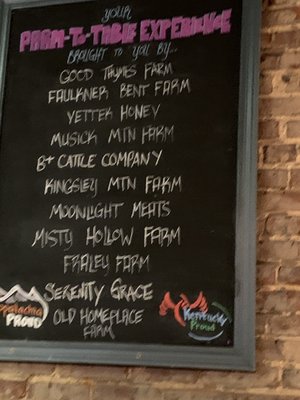 YOUR
FARM-TO-TABLE EXPERIENCE
BROUGHT TO YOU BY...
GOOD THYMES FARM
FAULKNER BENT FARM
VETTER HONEY
MUSICK MTN FARM
B+ CATTLE COMPANY
KINGSLEY MTN FARM
MOONLIGHT MEATS
MISTY HOLLOW FARM
FRALEY FARM
SERENITY GRACE
OLD HOMEPLACE
FARM
Appalachia
PROUD
Kentucky
Proud